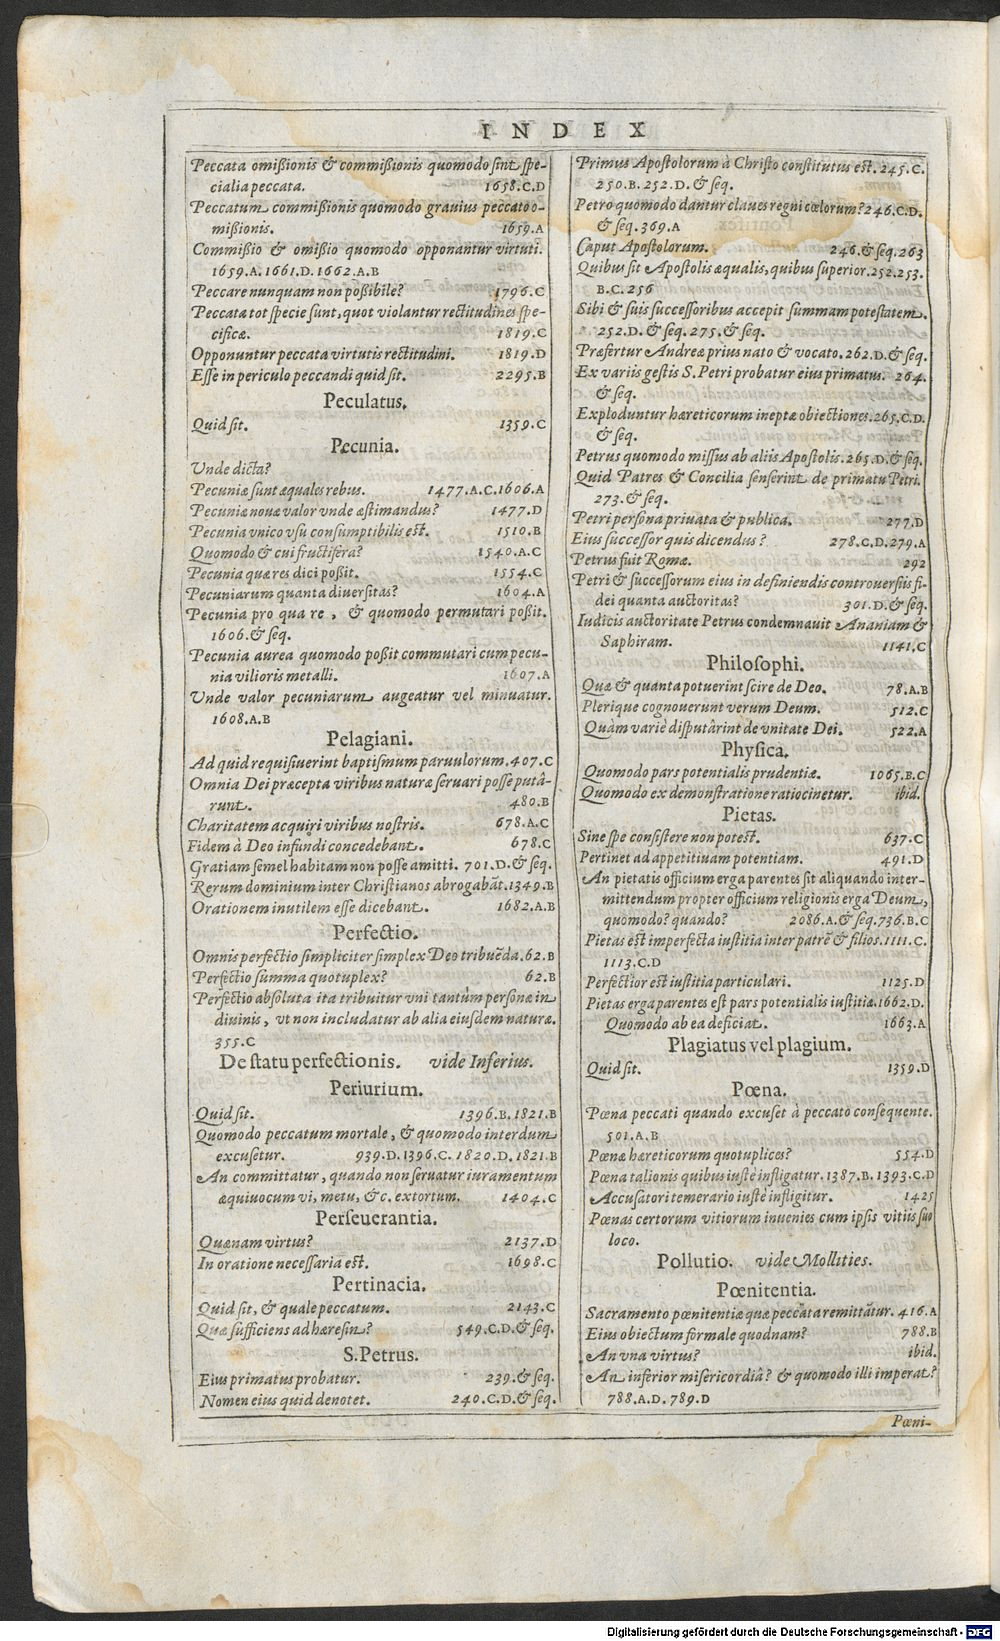 INDEX
Peccata omißionis & commißionis quomodo sint spe-
cialia peccata. 1658.C.D
Peccatum commißionis quomodo grauius peccato o-
mißionis. 1659.A
Commißio & omißio quomodo opponantur virtuti.
1659.A.1661.D.1662.A.B
Peccare nunquam non poßibile? 1796.C
Peccata tot specie sunt, quot violantur rectitudines spe-
cificæ. 1819.C
Opponuntur peccata virtutis rectitudini. 1819.D
Esse in periculo peccandi quid sit. 2295.B
Peculatus.
Quid sit. 1359.C
Pecunia.
Unde dicta?
Pecuniæ sunt æquales rebus. 1477.A.C.1606.A
Pecuniæ nouæ valor vnde æstimandus? 1477.D
Pecunia vnico vsu consumptibilis est. 1510.B
Quomodo & cui fructifera? 1540.A.C
Pecunia quæ res dici poßit. 1554.C
Pecuniarum quanta diuersitas? 1604.A
Pecunia pro qua re, & quomodo permutari poßit.
1606.& seq.
Pecunia aurea quomodo poßit commutari cum pecu-
nia vilioris metalli. 1607.A
Unde valor pecuniarum augeatur vel minuatur.
1608.A.B
Pelagiani.
Ad quid requisiuerint baptismum paruulorum. 407.C
Omnia Dei præcepta viribus naturæ seruari posse putâ-
runt. 480.B
Charitatem acquiri viribus nostris. 678.A.C
Fidem à Deo infundi concedebant. 678.C
Gratiam semel habitam non posse amitti. 701.D.& seq.
Rerum dominium inter Christianos abrogabāt. 1349.B
Orationem inutilem esse dicebant. 1682.A.B
Perfectio.
Omnis perfectio simpliciter simplex Deo tribuēda. 62.B
Perfectio summa quotuplex? 62.B
Perfectio absoluta ita tribuitur vni tantùm personæ in
diuinis, vt non includatur ab alia eiusdem naturæ.
355.C
De statu perfectionis. vide Inferius.
Periurium.
Quid sit. 1396.B.1821.B
Quomodo peccatum mortale, & quomodo interdum
excusetur. 939.D.1396.C.1820.D.1821.B
An committatur, quando non seruatur iuramentum
æquiuocum vi, metu, &c. extortum. 1404.C
Perseuerantia.
Quænam virtus? 2137.D
In oratione necessaria est. 1698.C
Pertinacia.
Quid sit, & quale peccatum. 2143.C
Quæ sufficiens ad hæresin? 549.C.D.& seq.
S. Petrus.
Eius primatus probatur. 239.& seq.
Nomen eius quid denotet. 240.C.D.& seq.
Primus Apostolorum à Christo constitutus est. 245.C.
250.B.252.D.& seq.
Petro quomodo dantur claues regni cœlorum? 246.C.D.
& seq. 369.A
Caput Apostolorum. 246.& seq. 263
Quibus sit Apostolis æqualis, quibus superior. 252.253.
B.C.256
Sibi & suis successoribus accepit summam potestatem.
252.D.& seq. 275.& seq.
Præfertur Andreæ prius nato & vocato. 262.D.& seq.
Ex variis gestis S. Petri probatur eius primatus. 264.
& seq.
Exploduntur hæreticorum ineptæ obiectiones. 265.C.D.
& seq.
Petrus quomodo missus ab aliis Apostolis. 265.D.& seq.
Quid Patres & Concilia senserint de primatu Petri.
273.& seq.
Petri persona priuata & publica. 277.D
Eius successor quis dicendus? 278.C.D.279.A
Petrus fuit Romæ. 292
Petri & successorum eius in definiendis controuersiis fi-
dei quanta auctoritas? 301.D.& seq.
Iudicis auctoritate Petrus condemnauit Ananiam &
Saphiram. 1141.C
Philosophi.
Quæ & quanta potuerint scire de Deo. 78.A.B
Plerique cognouerunt verum Deum. 512.C
Quàm variè disputârint de vnitate Dei. 522.A
Physica.
Quomodo pars potentialis prudentiæ. 1065.B.C
Quomodo ex demonstratione ratiocinetur. ibid.
Pietas.
Sine spe consistere non potest. 637.C
Pertinet ad appetitiuam potentiam. 491.D
An pietatis officium erga parentes sit aliquando inter-
mittendum propter officium religionis erga Deum,
quomodo? quando? 2086.A.& seq. 736.B.C
Pietas est imperfecta iustitia inter patrē & filios. 1111.C.
1113.C.D
Perfectior est iustitia particulari. 1125.D
Pietas erga parentes est pars potentialis iustitiæ. 1662.D.
Quomodo ab ea deficiat. 1663.A
Plagiatus vel plagium.
Quid sit. 1359.D
Pœna.
Pœna peccati quando excuset à peccato consequente.
501.A.B
Pœnæ hæreticorum quotuplices? 554.D
Pœna talionis quibus iustè infligatur. 1387.B.1393.C.D
Accusatori temerario iustè infligitur. 1425
Pœnas certorum vitiorum inuenies cum ipsis vitiis suo
loco.
Pollutio. vide Mollities.
Pœnitentia.
Sacramento pœnitentiæ quæ peccata remittātur. 416.A
Eius obiectum formale quodnam? 788.B
An vna virtus? ibid.
An inferior misericordiâ? & quomodo illi imperat?
788.A.D.789.D
Pœni-
Digitalisierung gefördert durch die Deutsche Forschungsgemeinschaft - DFG